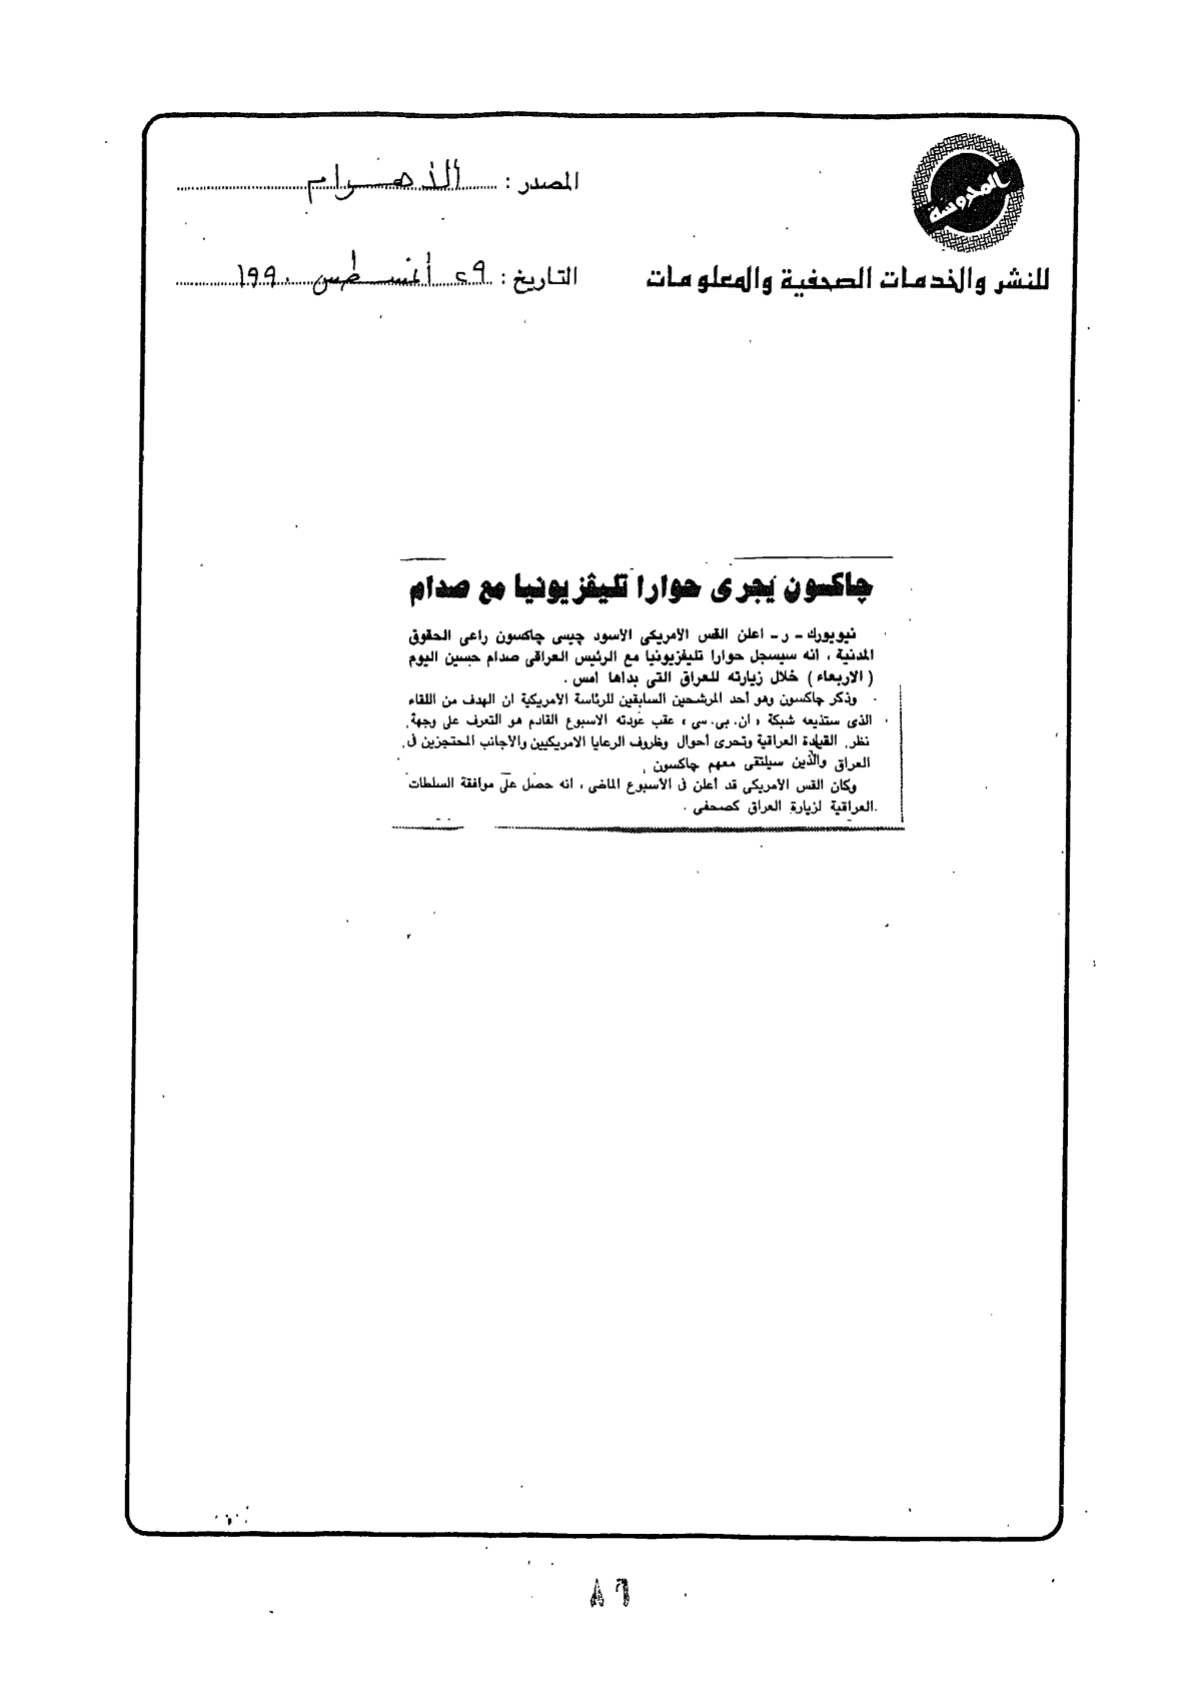 المحروسة
للنشر والخدمات الصحفية والمعلومات
المصدر : الأهرام
التاريخ : ٢٩ أغسطس ١٩٩٠
چاكسون يجرى حوارا تليڤزيونيا مع صدام
نيويورك - ر - اعلن القس الامريكى الاسود چيسى چاكسون راعى الحقوق
المدنية ، انه سيسجل حوارا تليفزيونيا مع الرئيس العراقى صدام حسين اليوم
( الاربعاء ) خلال زيارته للعراق التى بداها امس .
وذكر چاكسون وهو أحد المرشحين السابقين للرئاسة الأمريكية ان الهدف من اللقاء
الذى ستذيعه شبكة « ان. بى. سى » عقب عودته الاسبوع القادم هو التعرف على وجهة
نظر القيادة العراقية وتحرى أحوال وظروف الرعايا الامريكيين والأجانب المحتجزين فى
العراق والذين سيلتقى معهم چاكسون .
وكان القس الأمريكى قد أعلن فى الأسبوع الماضى ، انه حصل على موافقة السلطات
العراقية لزيارة العراق كصحفى .
٨٦